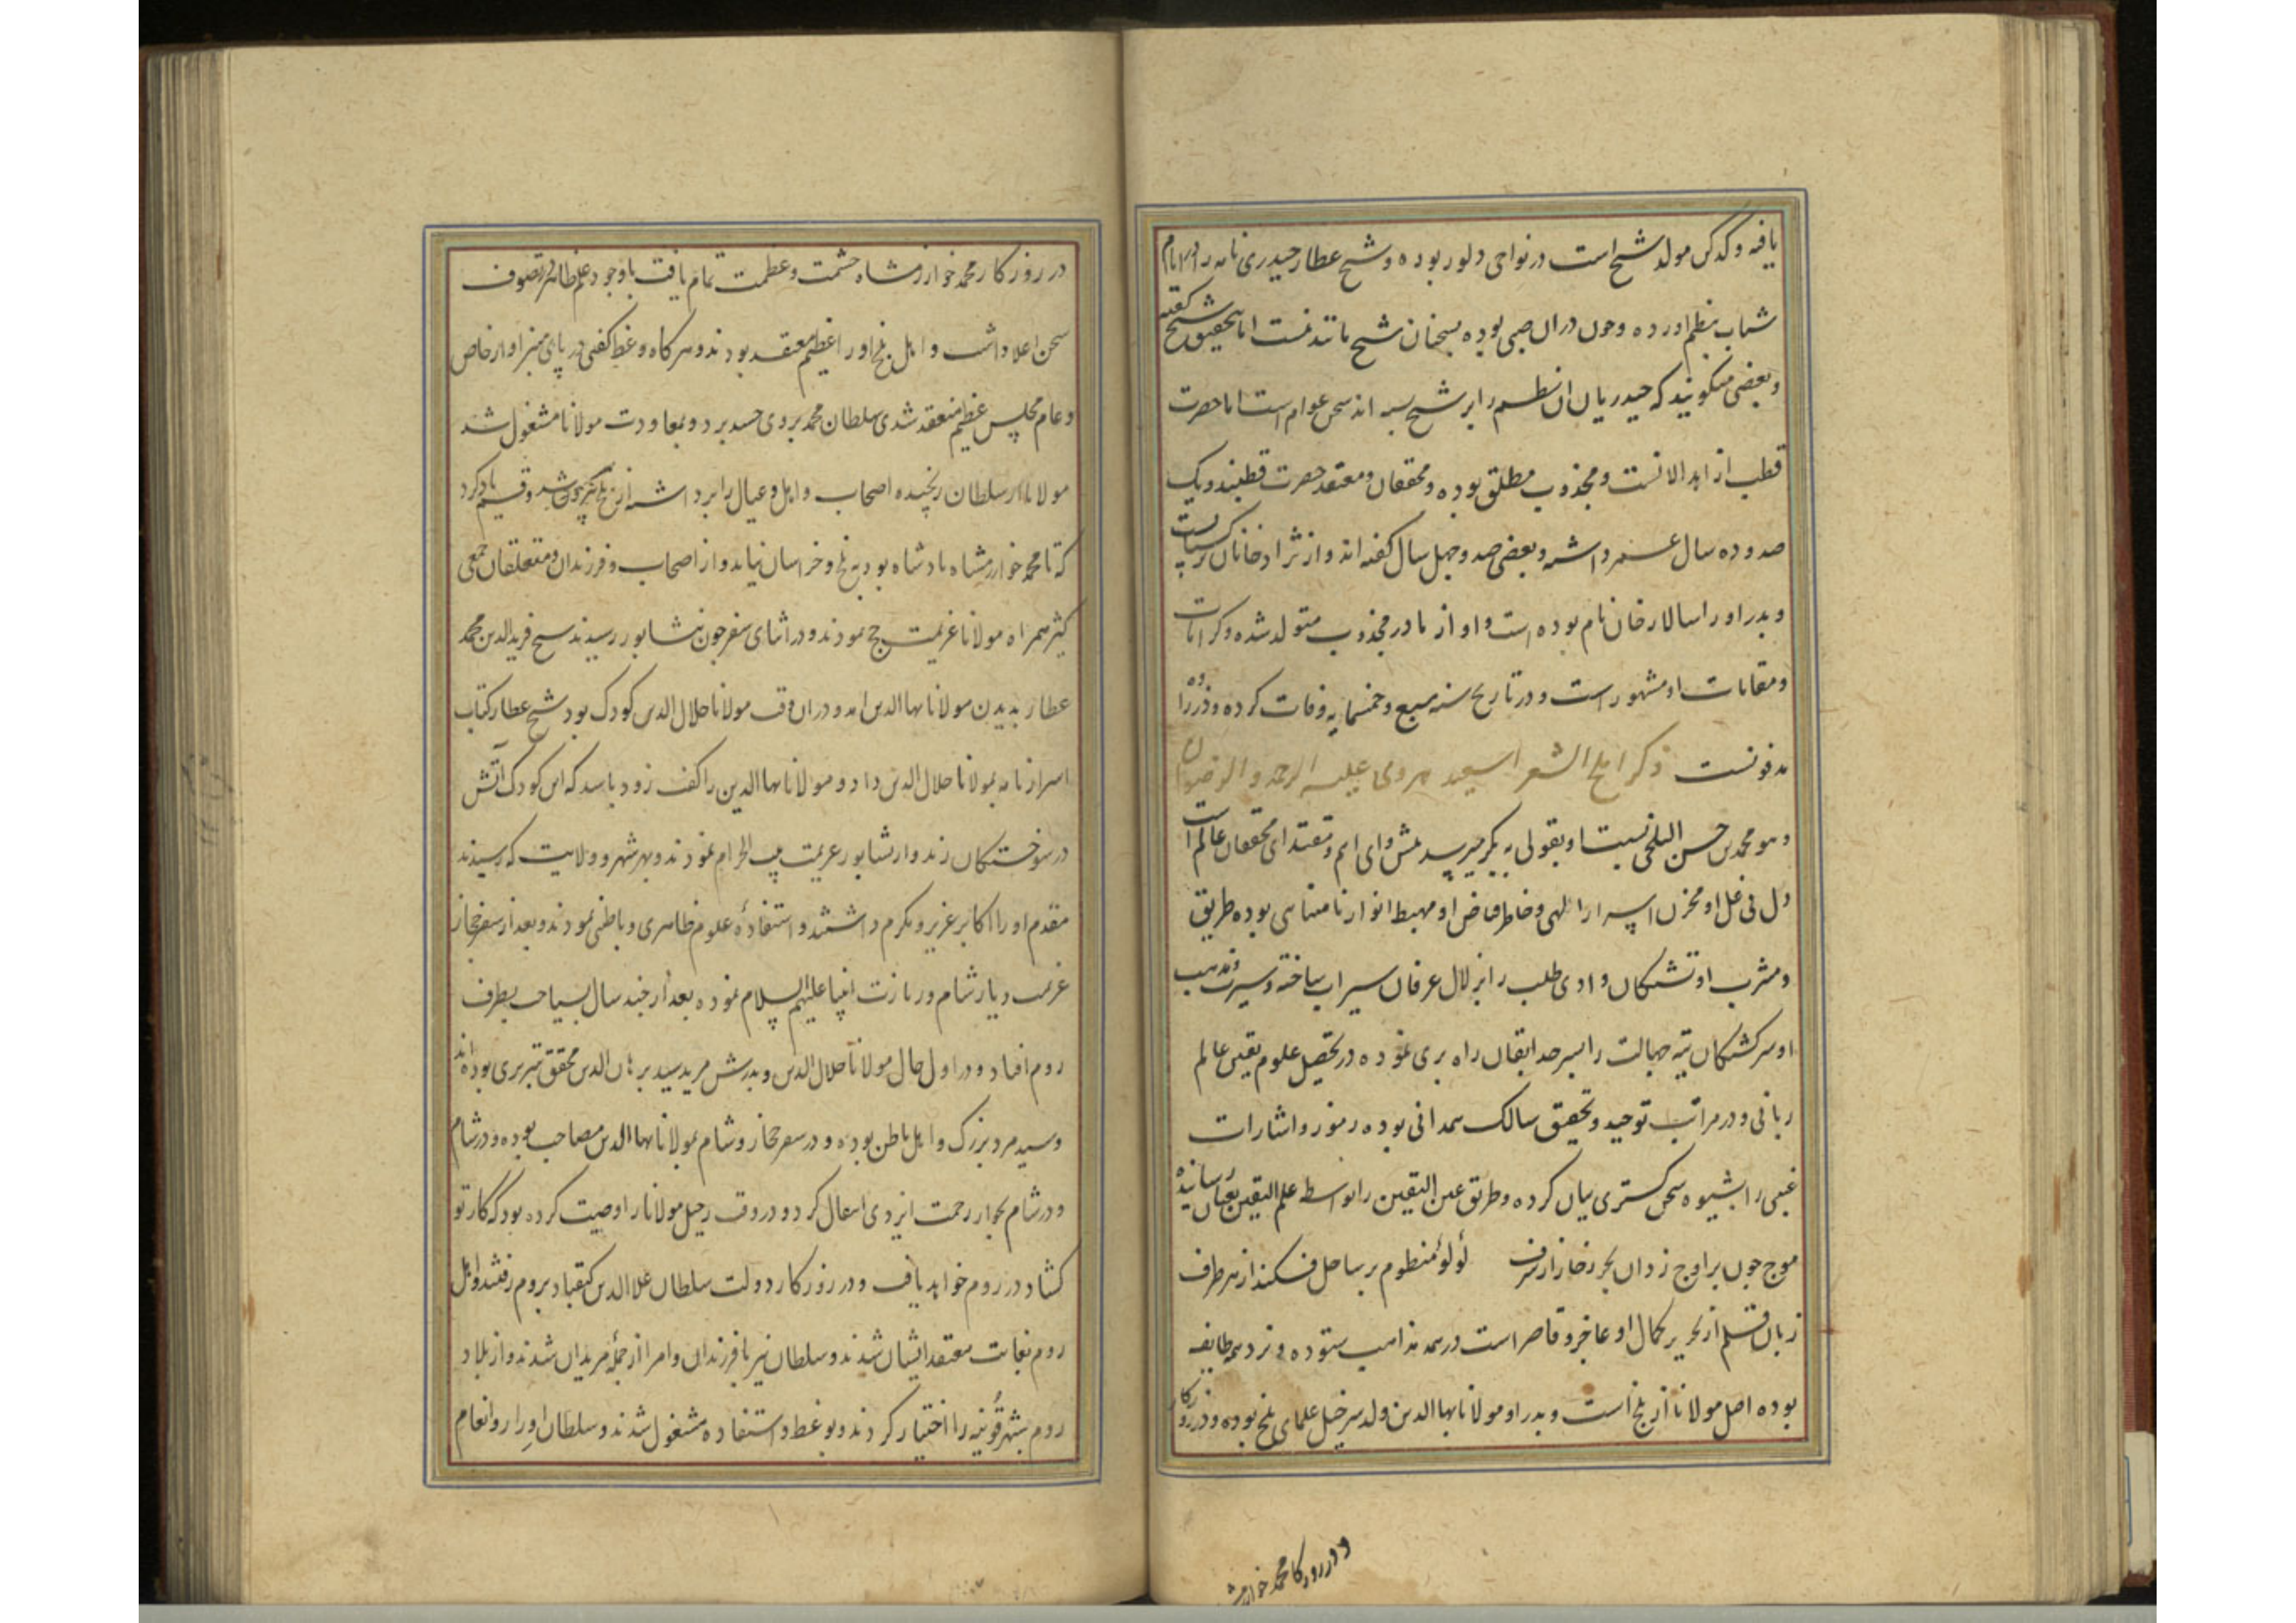 یافته و کدکن مولد شیخ است در نواحی دلور بوده و شیخ عطار حیدری نامه را در ایام
شباب بنظم اورده و چون در ان صبی بوده بسخنان شیخ مانند نیست اما بتحقیق شیخ گفته
و بعضی میکویند که حیدریان ان نظم را بر شیخ بسته اند سخن عوام است اما حضرت
قطب از ابدالانست و مجذوب مطلق بوده و محققان و معتقد حضرت قطبند و یک
صد و ده سال عمر داشته و بعضی صد و چهل سال گفته اند و از نژاد خانان ترکست
و پدر او را سالار خان نام بوده است و او از مادر مجذوب متولد شده و کرامات
و مقامات او مشهور است و در تاریخ سنه سبع و خمسمایه وفات کرده و در زاوه
مدفونست ذکر املح الشعرا علیه الرحمه و الرضوان
و هو محمد بن حسن البلخی نسبت او بقولی به میرسد پیشوای ام و مقتدای محققان عالم است
دل بی غل او مخزن اسرار الهی و خاطر فیاض او مهبط انوار نامتناهی بوده طریق
و مشرب او تشنکان وادی طلب را بزلال عرفان سیراب ساخته و سیرت و مذهب
او سرکشتکان تیه جهالت را بسرحد ایقان راه بری نموده در تحصیل علوم یقینی عالم
ربانی و در مراتب توحید و تحقیق سالک صمدانی بوده رموز و اشارات
غیبی را بشیوه سخن کستری بیان کرده و طریق عین الیقین را بواسطه علم الیقین بعیان رسانیده
موج چون بر اوج زد آن بحر زخار از شرف لؤلؤ منظوم بر ساحل فکند از هر طرف
زبان قلم از تحریر کمال او عاجز و قاصر است در همه مذاهب ستوده و نزد همه طایفه
بوده اصل مولانا از بلخ است و پدر او مولانا بها الدین ولد سرخیل علمای بلخ بوده و در روزکار
و در روزکار محمد خوارزمش
در روزکار محمد خوارزمشاه حشمت و عظمت تمام یافت باوجود علم ظاهر در تصوف
سخن اعلا داشت و اهل بلخ او را عظیم معتقد بودند و هر کاه وعظ کفتی در پای منبر او از خاص
و عام مجلس عظیم منعقد شدی سلطان محمد بر وی حسد برد و بمعاودت مولانا مشغول شد
مولانا از سلطان رنجیده اصحاب و اهل و عیال را برداشته از بلخ بیرون شد و قسم یاد کرد
که تا محمد خوارزمشاه پادشاه بود به بلخ و خراسان نیاید و از اصحاب و فرزندان و متعلقان جمعی
کثیر همراه مولانا عزیمت حج نمودند و در اثنای سفر چون بنشابور رسیدند شیخ فریدالدین محمد
عطار بدیدن مولانا بها الدین امد و در ان وقت مولانا جلال الدین کودک بود شیخ عطار کتاب
اسرار نامه بمولانا جلال الدین داد و مولانا بها الدین را کفت زود باشد که این کودک آتش
در سوختکان زند و از نشابور عزیمت بیت الحرام نمودند و بهر شهر و ولایت که رسیدند
مقدم او را اکابر عزیز و مکرم داشتند و استفادهٔ علوم ظاهری و باطنی نمودند و بعد از سفر حجاز
عزیمت دیار شام و زیارت انبیا علیهم السلام نموده بعد از چند سال بسیاحت بطرف
روم افتاد و در اول حال مولانا جلال الدین و پدرش مرید سید برهان الدین محقق تبریزی بوده اند
و سید مرد بزرک و اهل باطن بوده و در سفر حجاز و شام بمولانا بها الدین مصاحب بوده و در شام
و در شام بجوار رحمت ایزدی انتقال کرد و در وقت رحیل مولانا را وصیت کرده بود که کار تو
کشاد در روم خواهد یافت و در روزکار دولت سلطان علا الدین کیقباد بروم رفتند و اهل
روم بغایت معتقد ایشان شدند و سلطان نیز با فرزندان و امرا از جمله مریدان شدند و از بلاد
روم بشهر قونیه را اختیار کردند و بوعظ و استفاده مشغول شدند و سلطان او را روانعام